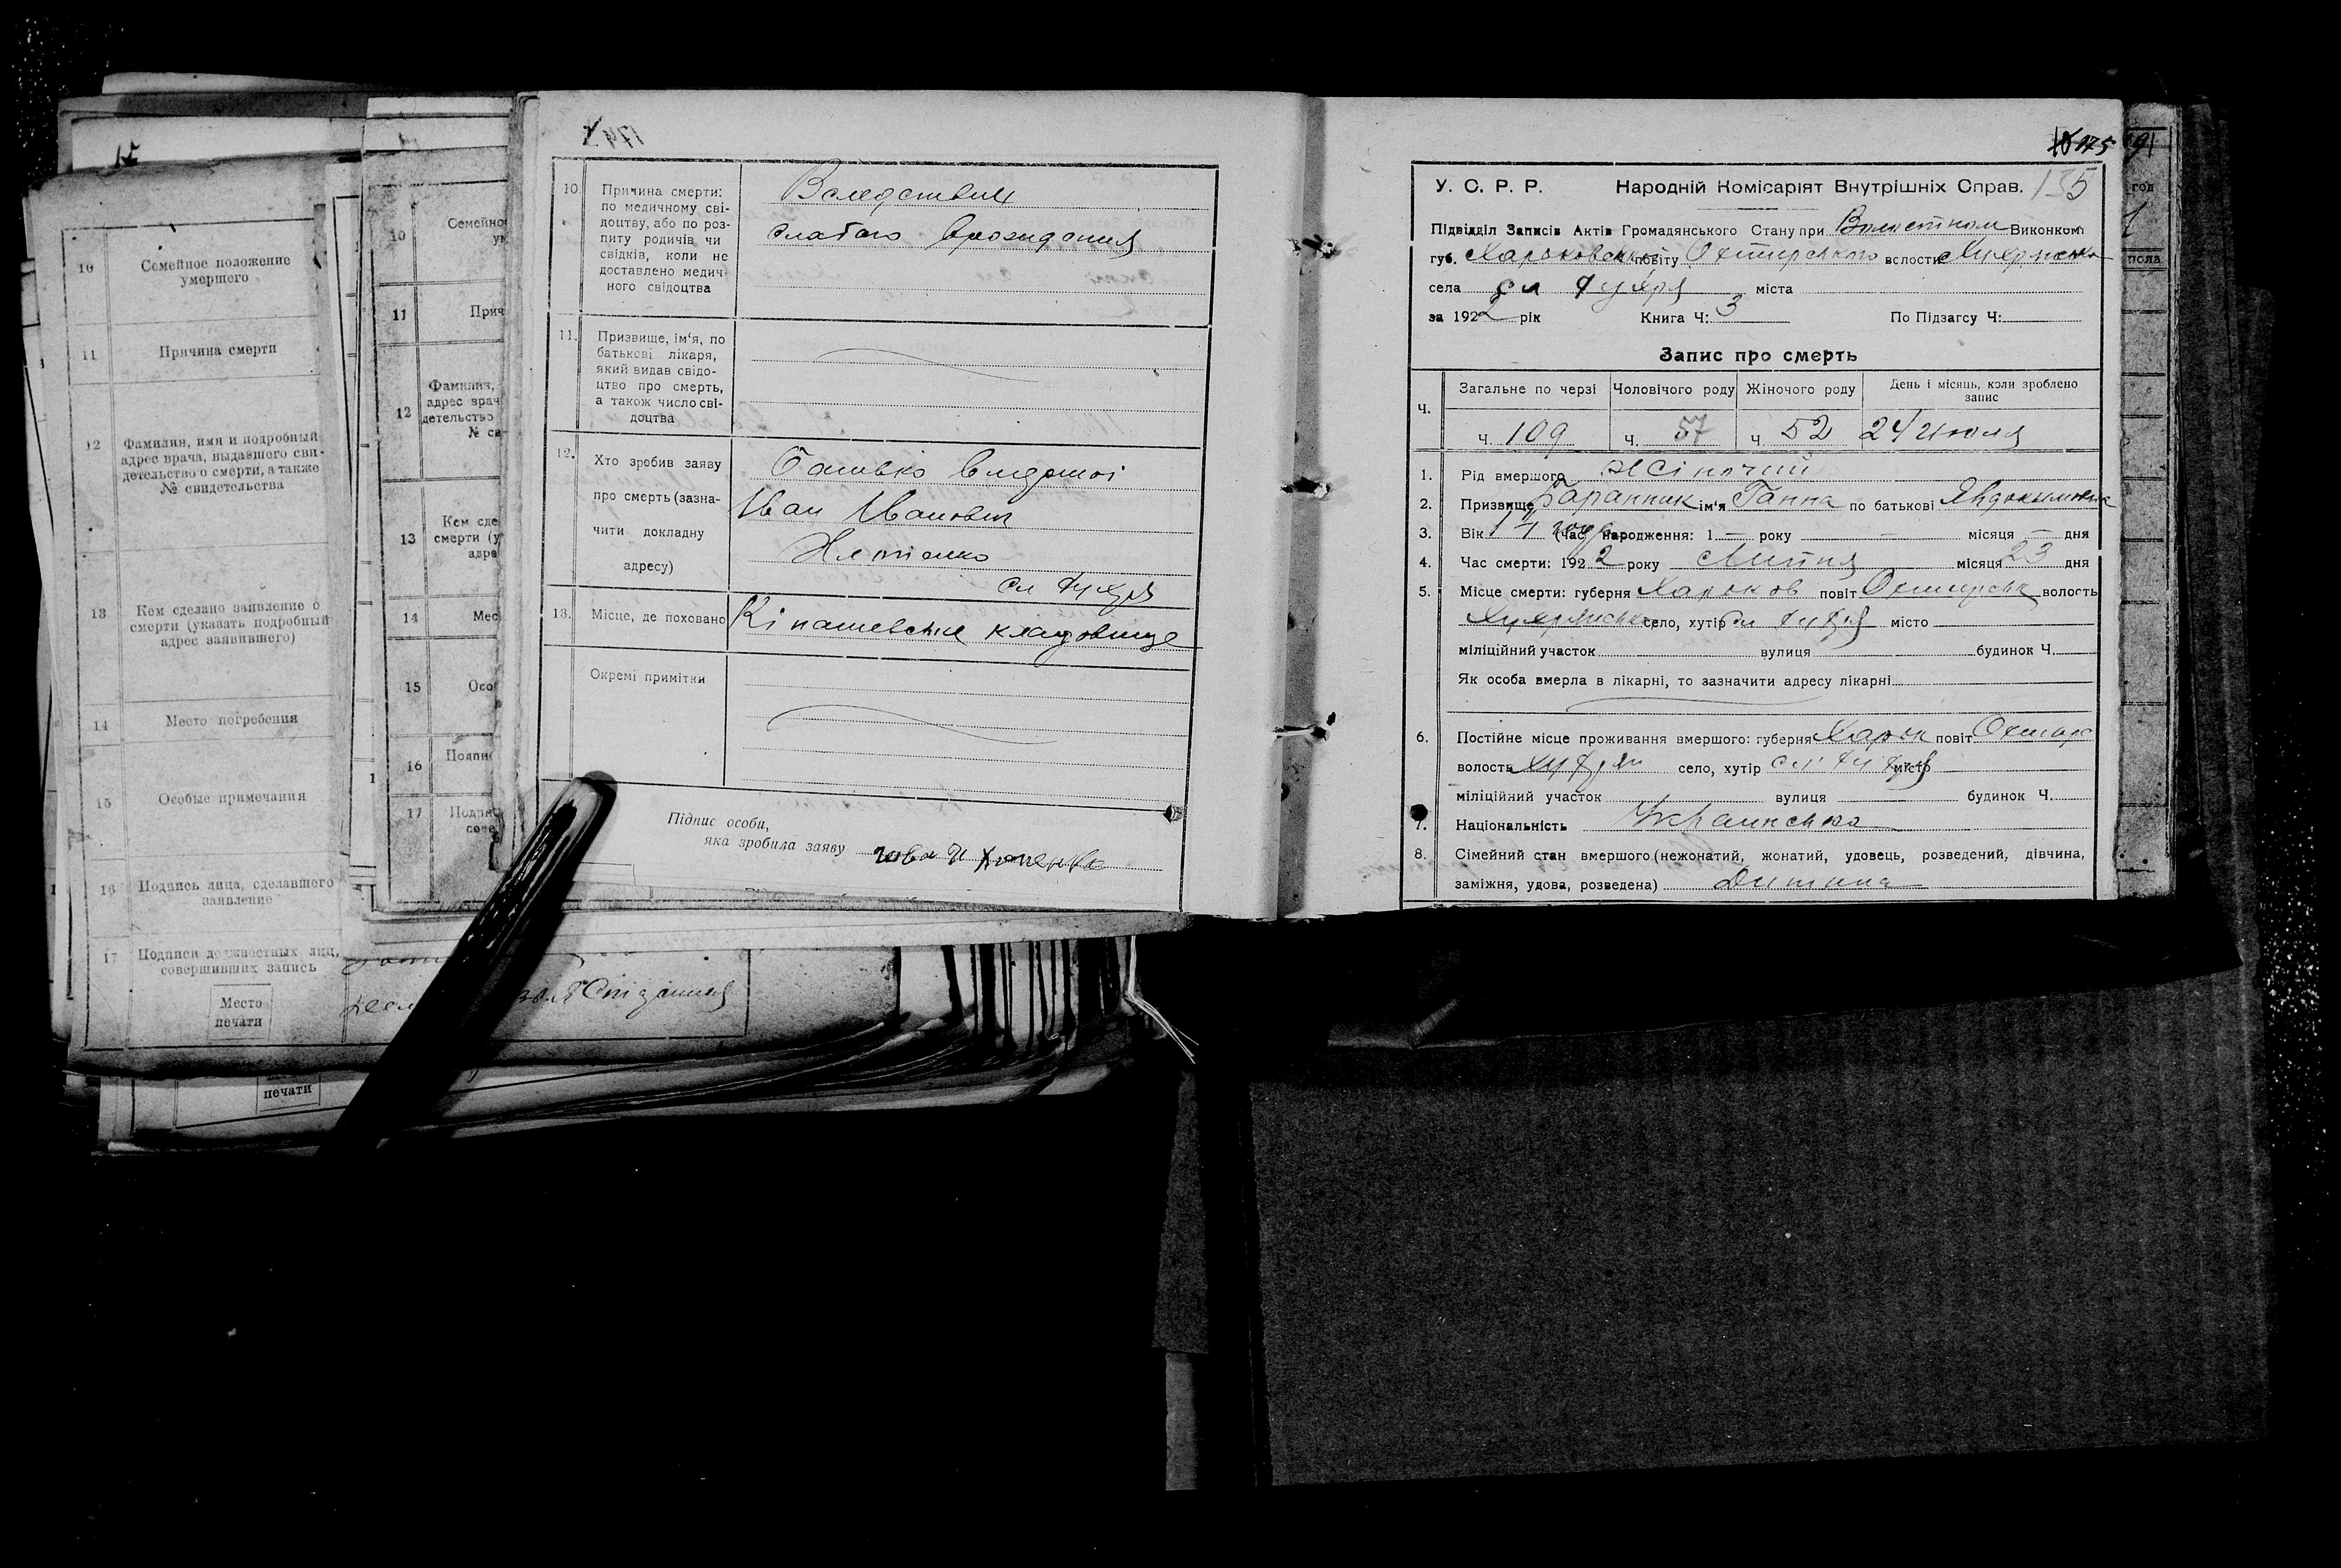 10
Семейное положение
умершего
11
Причина смерти
12
Фамилия, имя и подробный
адрес врача, выдавшего сви-
детельство о смерти, а также
№ свидетельства
13
Кем сделано заявление о
смерти (указать подробный
адрес заявившего)
14
Место погребения
15
Особые примечания
16
Подпись лица, сделавшего
заявление
17
Подписи должностных лиц,
совершивших запись
Место
печати
печати
10
Семейно
11
Прич
12
Фамилия,
адрес врач
детельство
№ св
13
Кем сде
смерти (у
адре
14
Мес
15
Осо
16
Подпи
17
174
10.
Причина смерти:
по медичному сві-
доцтву, або по роз-
питу родичів чи
свідків, коли не
доставлено медич-
ного свідоцтва
Вследствии
слабого врождения
11.
Призвище, ім'я, по
батькові лікаря,
який видав свідо-
цтво про смерть,
а також число сві-
доцтва
12.
Хто зробив заяву
про смерть (зазна-
чити докладну
адресу)
Батько
Иван Иванович
13.
Місце, де поховано
кладовище
Окремі примітки
Підпис особи,
яка зробила заяву
175
135
У. С. Р. Р. Народній Комісаріят Внутрішніх Справ.
Підвідділ Записів Актів Громадянського Стану при Волостном Виконкомі
губ. Харьковської повіту Охтирського волости
села сл міста
за 1922 рік Книга Ч: 3 По Підзагсу Ч:
Запис про смерть
Ч.
Загальне по черзі Чоловічого роду Жіночого роду День і місяць, коли зроблено
запис
ч. 109 ч. 57 ч. 52 24 июля
1. Рід вмершого жіночий
2. Призвище Баранник ім'я Ганна по батькові
3. Вік (час народження: 1 — року — місяця — дня
4. Час смерти: 1922 року Липня місяця 23 дня
5. Місце смерти: губерня Харьков повіт Охтирськ волость
село, хутір сл місто
міліційний участок вулиця будинок Ч.
Як особа вмерла в лікарні, то зазначити адресу лікарні
6. Постійне місце проживання вмершого: губерня Харьк повіт Охтирс
волость село, хутір сл місто
міліційний участок вулиця будинок Ч.
7. Національність Украинська
8. Сімейний стан вмершого (нежонатий, жонатий, удовець, розведений, дівчина,
заміжня, удова, розведена) Дитина
год
пола